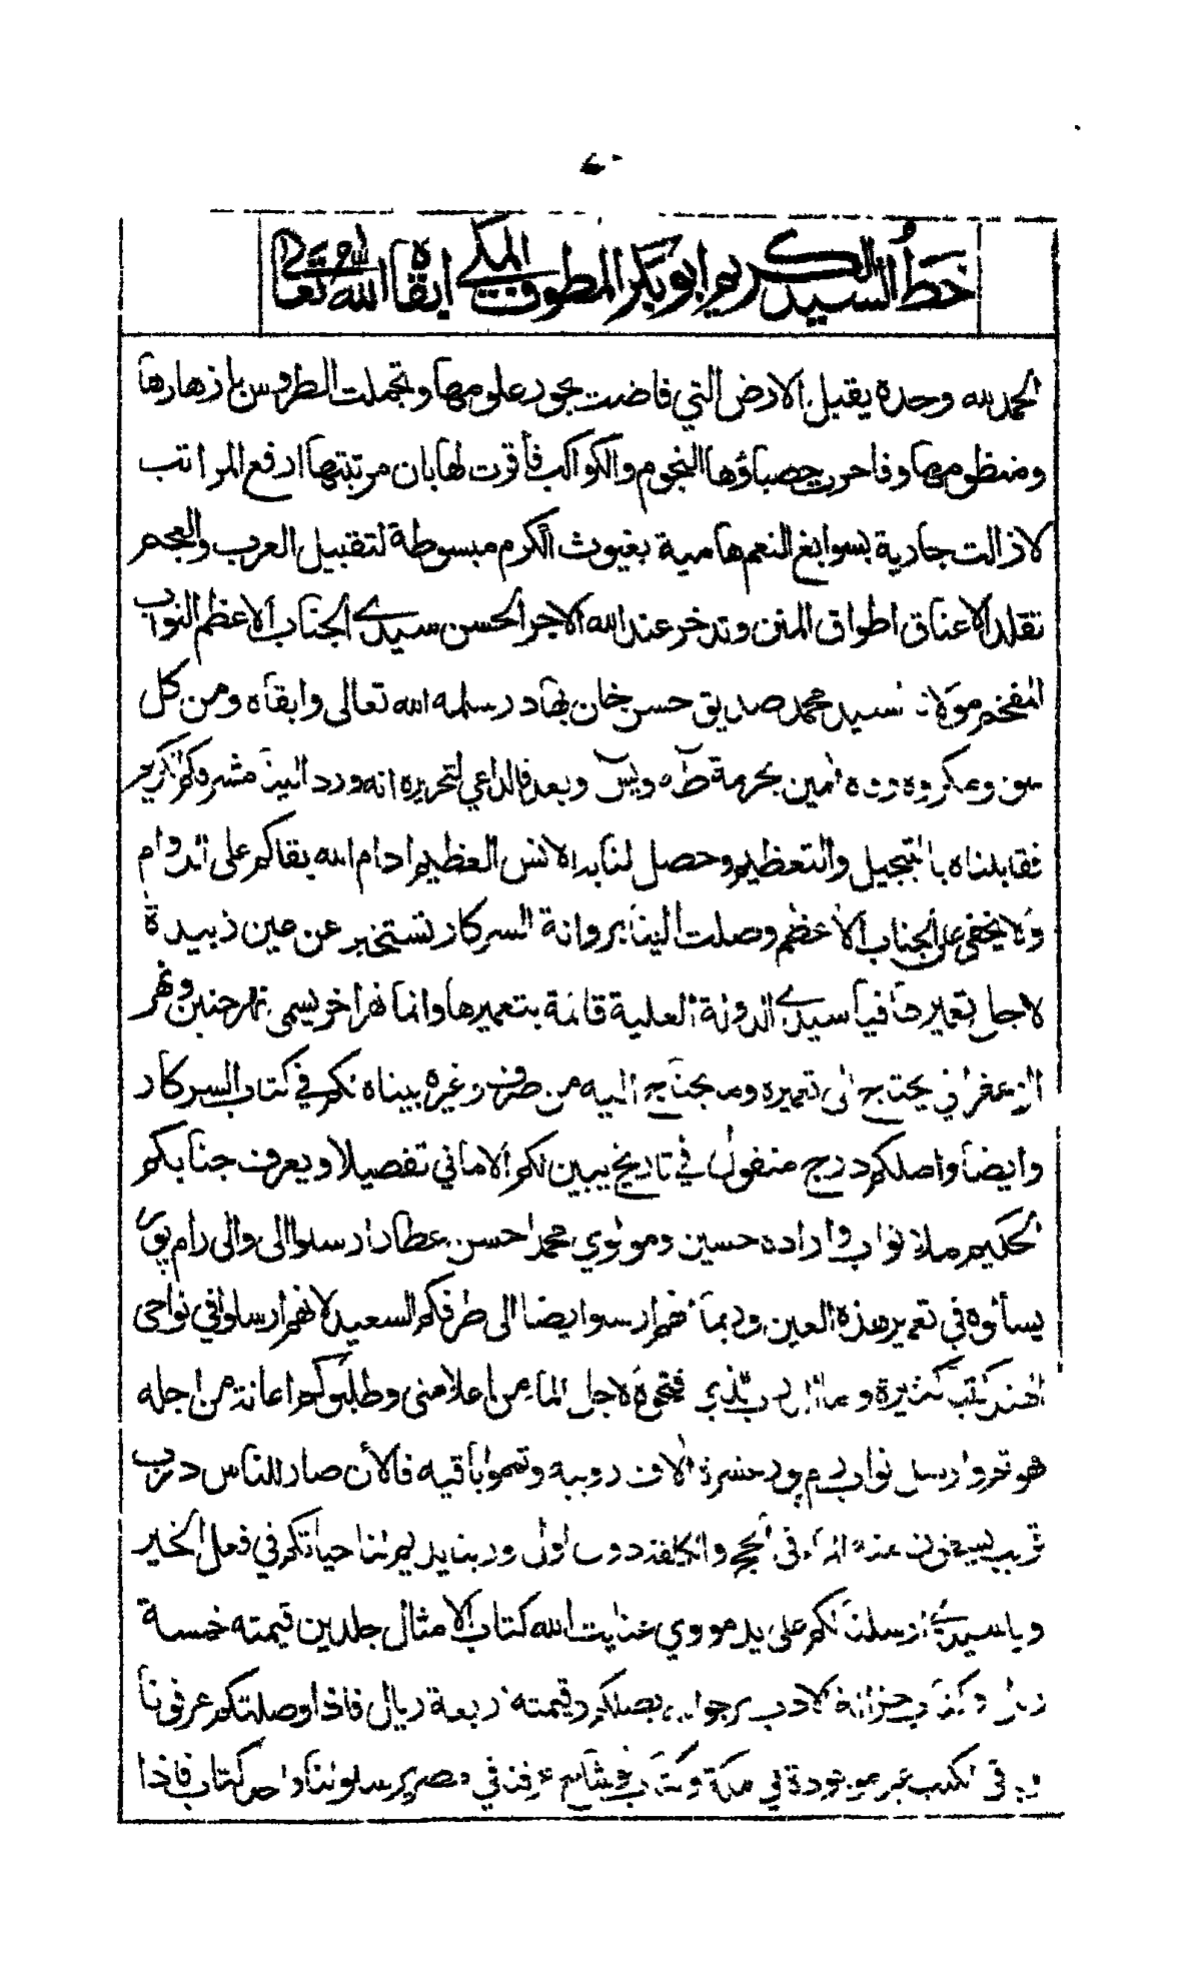 خط السيد الكريم ابو بكر المطوف المكي ابقاه الله تعالى
الحمد لله وحده يقبل الارض التي فاضت بحور علومها وتجملت الطروس بازهارها
ومنظومها وفاخرت حصباؤها النجوم والكواكب فأقرت لها بان مرتبتها ارفع المراتب
لازالت جارية بسوابغ النعم هامية بغيوث الكرم مبسوطة لتقبيل العرب والعجم
تقلد الاعناق اطواق المنن وتدخر عند الله الاجر الحسن سيدي الجناب الاعظم النواب
المفخم مولانا سيد محمد صديق حسن خان بهادر سلمه الله تعالى وابقاه ومن كل
سوء ومكروه وقاه امين بحرمة طه ويس وبعد فالداعي لتحريره انه ورد الينا مشرفكم الكريم
فقابلناه بالتبجيل والتعظيم وحصل لنا به الانس العظيم ادام الله بقاكم على الدوام
ولا يخفى على الجناب الاعظم وصلت الينا بروانة السركار تستخبر عن عين زبيدة
لاجل تعميرها فيا سيدي الدولة العلية قائمة بتعميرها وانما نهرا اخر يسمى نهر حنين ونهر
الزعفراني يحتاج الى تعميره وما يحتاج اليه من صرف وغيره بيناه لكم في كتاب السركار
وايضا واصلكم درج منقول في تاريخ يبين لكم الاماني تفصيلا ويعرف جنابكم
الحكيم ملا نواب و اراده حسين ومولوي محمد احسن عطار ارسلوا الى والى رام پور
يسألوه في تعمير هذه العين وربما انهم ارسوا ايضا الى طرفكم السعيد لانهم ارسلوا في نواحى
الهند كتب كثيرة و الذي فتحوه لاجل الما من اعلا منى وطلبوكم اعانة من اجله
هو نواب رام پور عشرة الاف روبيه وتموا باقيه فالأن صار للناس درب
قريب في الحج و دوب اولى وربنا يديم لنا حياتكم في فعل الخير
ويا سيدي ارسلنا لكم على يد مولوي عنايت الله كتاب الامثال جلدين قيمته خمسة
ريال وكتاب خزانة الادب يصلكم قيمته اربعة ريال فاذا وصلتكم عرفونا
وباقى الكتب غير موجودة في مكة في مصر كتاب فاذا